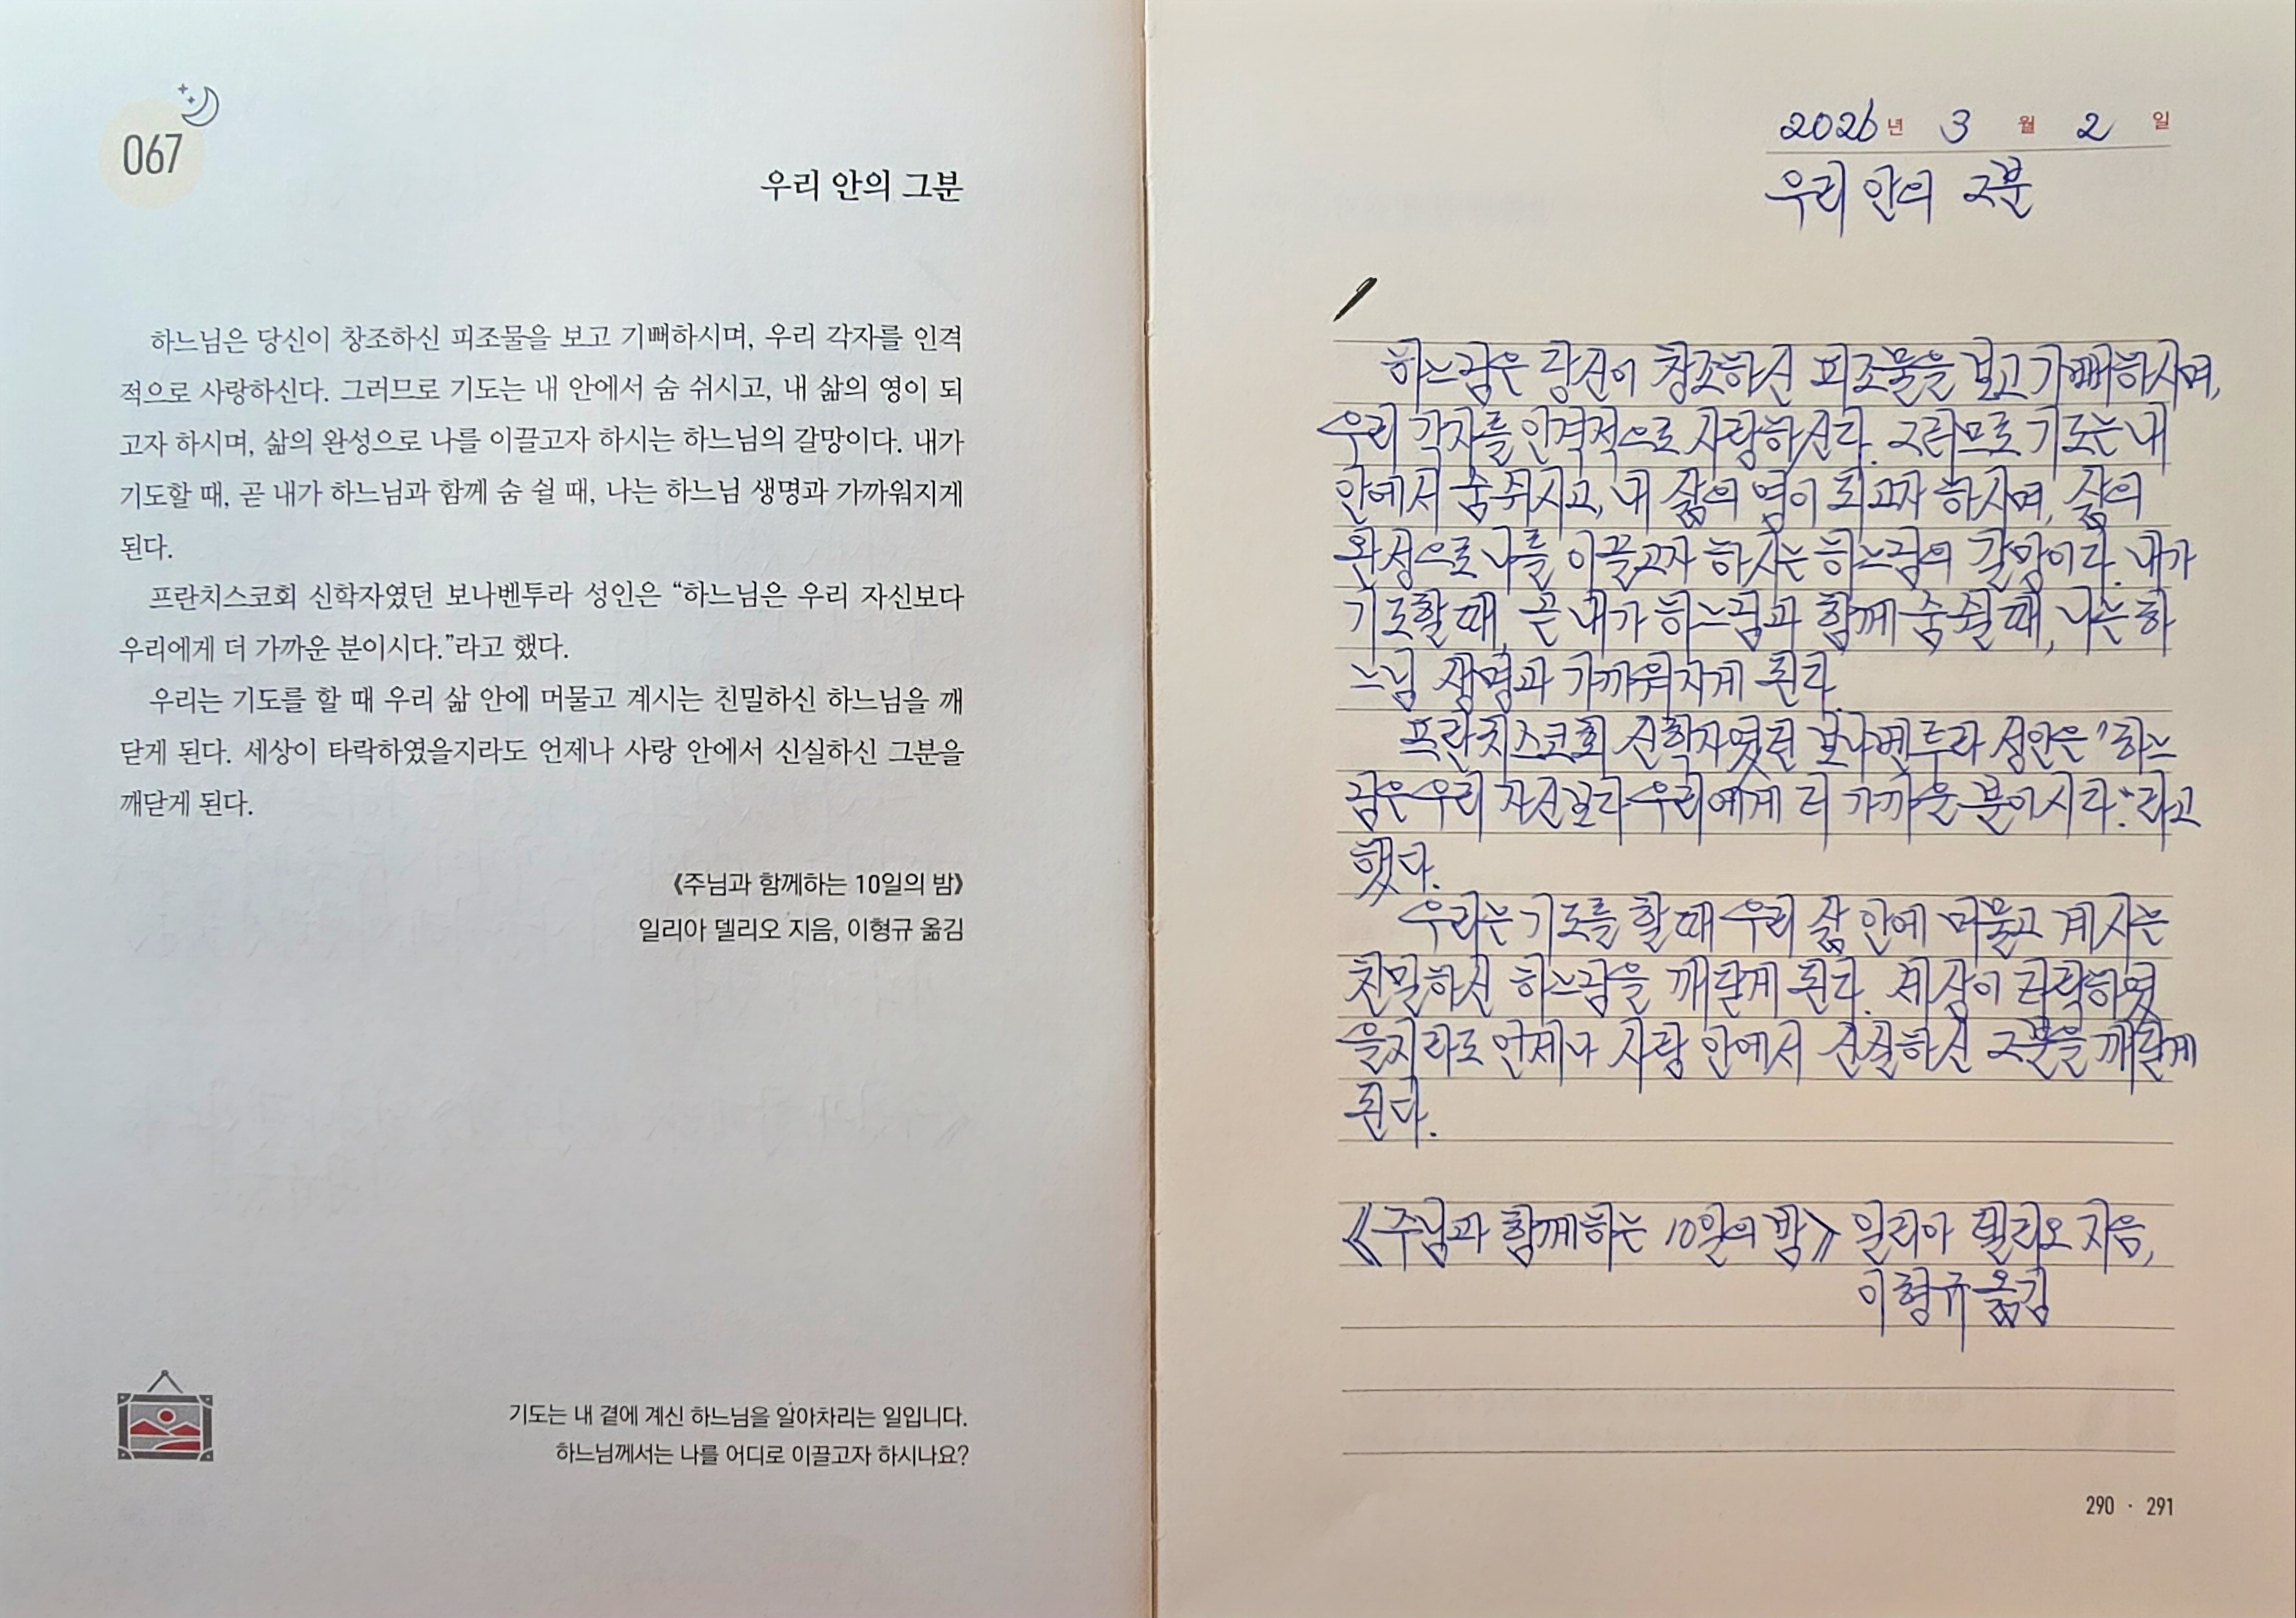 067
우리 안의 그분
하느님은 당신이 창조하신 피조물을 보고 기뻐하시며, 우리 각자를 인격
적으로 사랑하신다. 그러므로 기도는 내 안에서 숨 쉬시고, 내 삶의 영이 되
고자 하시며, 삶의 완성으로 나를 이끌고자 하시는 하느님의 갈망이다. 내가
기도할 때, 곧 내가 하느님과 함께 숨 쉴 때, 나는 하느님 생명과 가까워지게
된다.
프란치스코회 신학자였던 보나벤투라 성인은 “하느님은 우리 자신보다
우리에게 더 가까운 분이시다.”라고 했다.
우리는 기도를 할 때 우리 삶 안에 머물고 계시는 친밀하신 하느님을 깨
닫게 된다. 세상이 타락하였을지라도 언제나 사랑 안에서 신실하신 그분을
깨닫게 된다.
《주님과 함께하는 10일의 밤》
일리아 델리오 지음, 이형규 옮김
기도는 내 곁에 계신 하느님을 알아차리는 일입니다.
하느님께서는 나를 어디로 이끌고자 하시나요?
2026년 3월 2일
우리 안의 그분
하느님은 당신이 창조하신 피조물을 보고 기뻐하시며,
우리 각자를 인격적으로 사랑하신다. 그러므로 기도는 내
안에서 숨 쉬시고, 내 삶의 영이 되고자 하시며, 삶의
완성으로 나를 이끌고자 하시는 하느님의 갈망이다. 내가
기도할 때, 곧 내가 하느님과 함께 숨 쉴 때, 나는 하
느님 생명과 가까워지게 된다.
프란치스코회 신학자였던 보나벤투라 성인은 "하느
님은 우리 자신보다 우리에게 더 가까운 분이시다."라고
했다.
우리는 기도를 할 때 우리 삶 안에 머물고 계시는
친밀하신 하느님을 깨닫게 된다. 세상이 타락하였
을지라도 언제나 사랑 안에서 신실하신 그분을 깨닫게
된다.
《주님과 함께하는 10일의 밤》 일리아 델리오 지음,
이형규 옮김
290 · 291